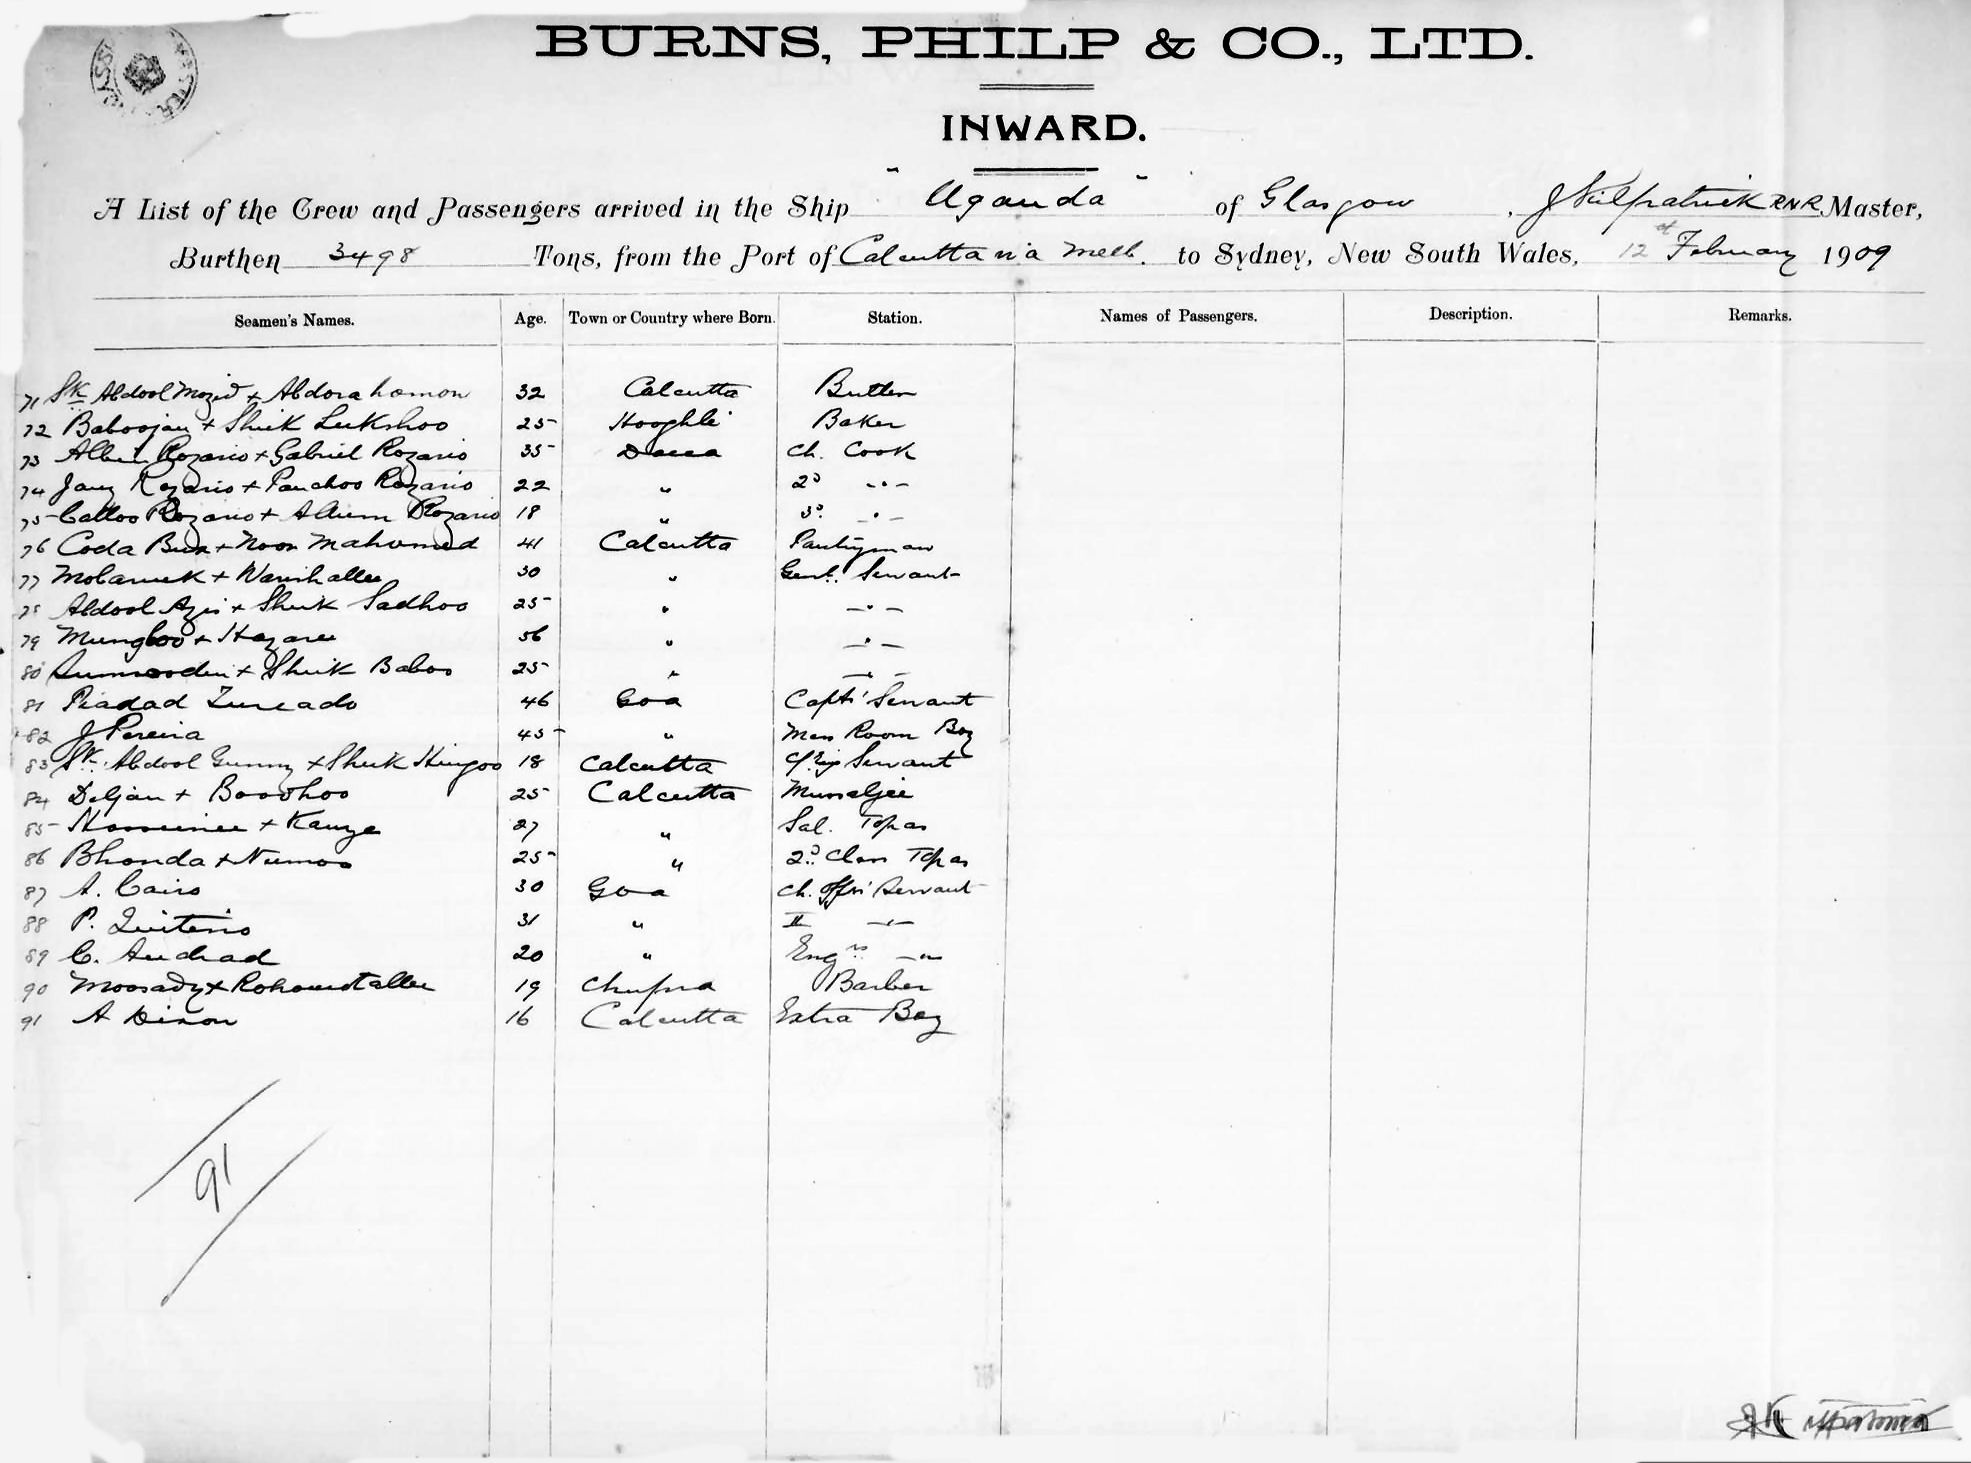 BURNS, PHILP & CO., LTD.
INWARD.
A List of the Crew and Passengers arrived in the Ship "Uganda" of Glasgow, J Kilpatrick RNR Master,
Burthen 3498 Tons, from the Port of Calcutta via Melb. to Sydney, New South Wales, 12th February 1909
Seamen's Names. Age. Town or Country where Born. Station. Names of Passengers. Description. Remarks.
71 Sk Abdool Mozid + Abdorahomon 32 Calcutta Butler
72 Baboojan + Shuik Lukshoo 25 Hooghli Baker
73 Rozario + Gabriel Rozario 35 Dacca Ch. Cook
74 Rozario + Panchoo Rozario 22 " 2d - " -
75 Rozario + Rozario 18 " 3d. - " -
76 Coda Bux + Noor Mahomed 41 Calcutta Pantryman
77 Mobaruck + Warishallee 30 " Genl. Servant
78 Abdool Azis + Shuik Sadhoo 25 " - " -
79 Mungloo + Hazaree 56 " - " -
80 + Shuik Baboo 25 " - " -
81 Piadad Furcado 46 Goa Capts' Servant
82 J Pereira 45 " Mess Room Boy
83 Sk. Abdool Gunny + Shuik Hingoo 18 Calcutta Servant
84 Deljan + Boodhoo 25 Calcutta Mussaljee
85 + 27 " Sal. Topas
86 Bhonda + Numoo 25 " 2d. Class Topas
87 A. Cairo 30 Goa Ch. Offrs' Servant
88 P. Quiterio 31 " II - " -
89 C. Andrad 20 " Engrs - " -
90 Moosady + 19 Chupra Barber
91 A Dixon 16 Calcutta Extra Boy
91